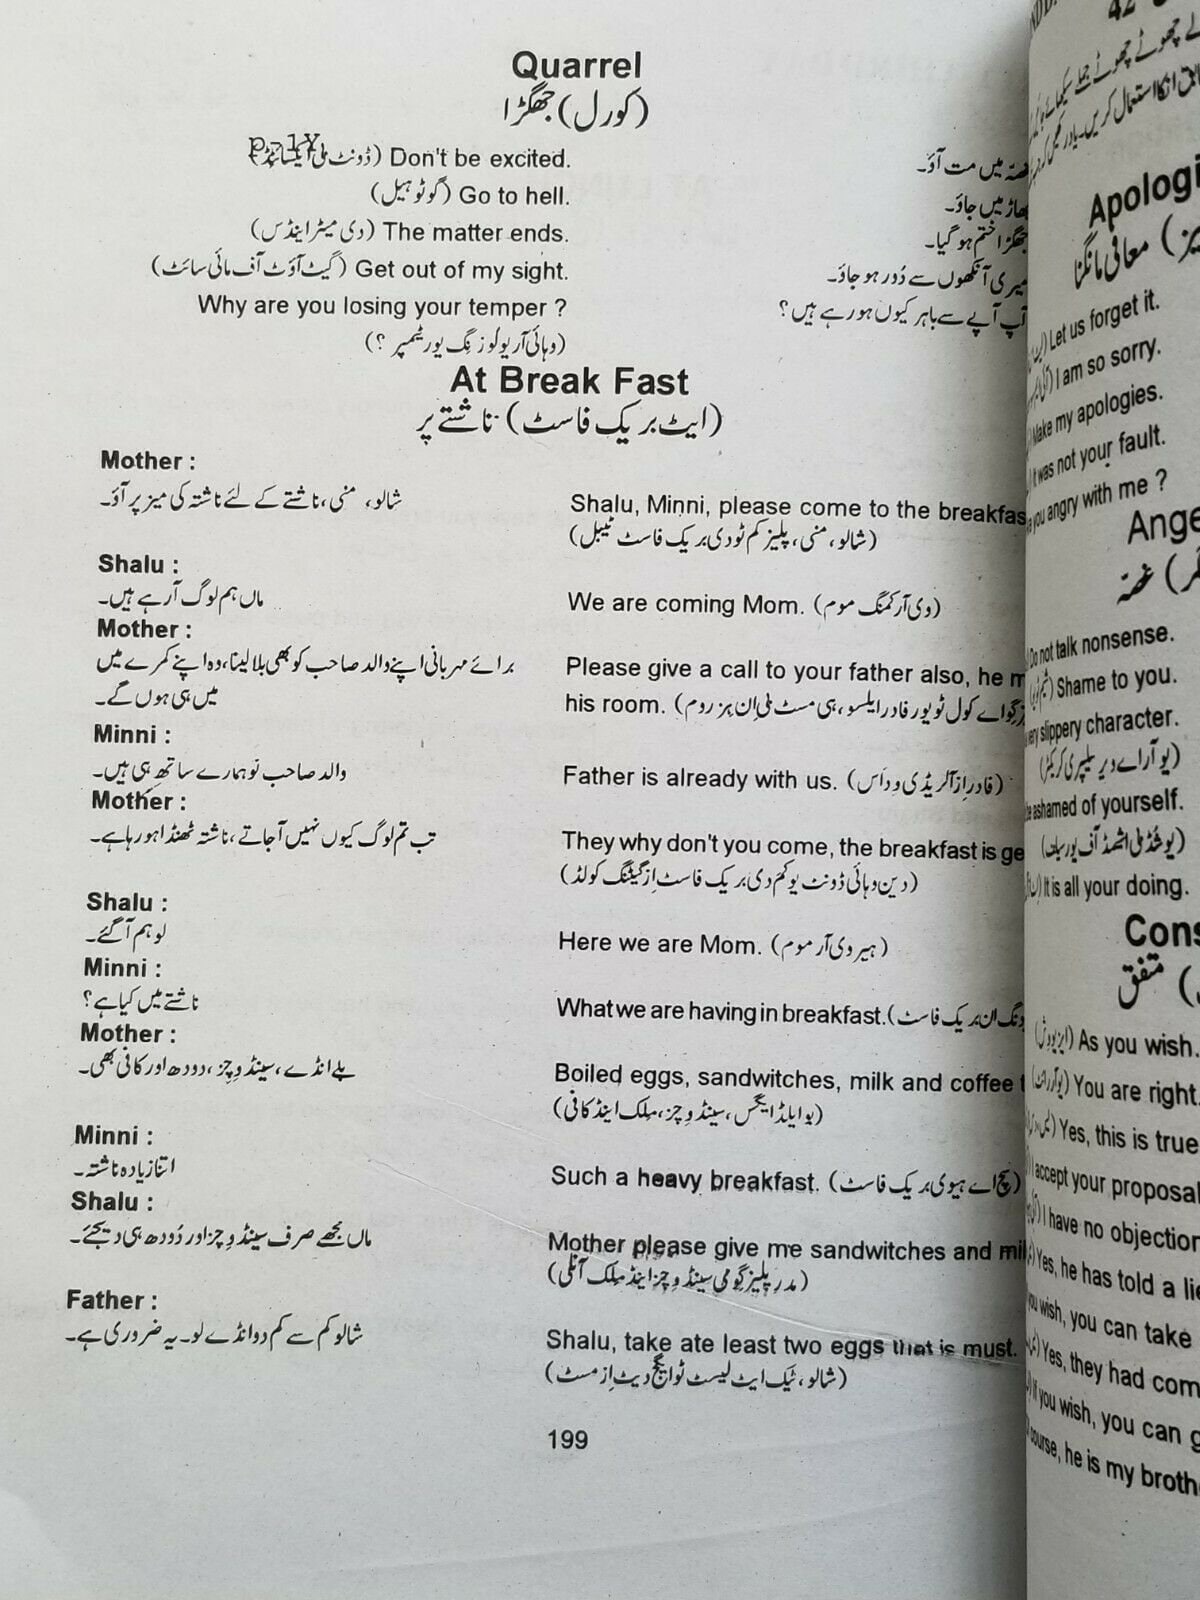 Quarrel
(کورل) جھگڑا
Don't be excited. غصّہ میں مت آؤ۔
(گوٹو ہیل) Go to hell. بھاڑ میں جاؤ۔
(دی میٹر اینڈس) The matter ends. جھگڑا ختم ہو گیا۔
(گیٹ آؤٹ آف مائی سائٹ) Get out of my sight. میری آنکھوں سے دُور ہو جاؤ۔
Why are you losing your temper ? آپ آپے سے باہر کیوں ہو رہے ہیں؟
(وہائی آر یو لوزنگ یور ٹیمپر ؟)
At Break Fast
(ایٹ بریک فاسٹ) ناشتے پر
Mother :
شالو، منی، ناشتے کے لئے ناشتہ کی میز پر آؤ۔ Shalu, Minni, please come to the
(شالو، منی، پلیز کم ٹو دی بریک فاسٹ ٹیبل)
Shalu :
ماں ہم لوگ آرہے ہیں۔ We are coming Mom. (وی آر کمنگ موم)
Mother :
برائے مہربانی اپنے والد صاحب کو بھی بلا لینا، وہ اپنے کمرے میں Please give a call to your father also, he
میں ہی ہوں گے۔ his room. گو اے کول ٹو یور فادر ایلسو، ہی مسٹ بی اِن ہز روم)
Minni :
والد صاحب تو ہمارے ساتھ ہی ہیں۔ Father is already with us. (فادر اِز آلریڈی ود اَس)
Mother :
تب تم لوگ کیوں نہیں آجاتے، ناشتہ ٹھنڈا ہو رہا ہے۔ They why don't you come, the breakfast is
(دین وہائی ڈونٹ یو کم دی بریک فاسٹ اِز گیٹنگ کولڈ)
Shalu :
لو ہم آ گئے۔ Here we are Mom. (ہیر وی آر موم)
Minni :
ناشتے میں کیا ہے؟ What we are having in breakfast. ان بریک فاسٹ)
Mother :
بلے انڈے، سینڈوِچز، دودھ اور کافی بھی۔ Boiled eggs, sandwitches, milk and coffee
(بوایلڈ ایگس، سینڈوِچز، مِلک اینڈ کافی)
Minni :
اتنا زیادہ ناشتہ۔ Such a heavy breakfast. (سچ اے ہیوی بریک فاسٹ)
Shalu :
ماں مجھے صرف سینڈوِچز اور دُودھ ہی دیجئے۔ Mother please give me sandwitches and
(مدر پلیز گو می سینڈوِچز اینڈ مِلک آنلی)
Father :
شالو کم سے کم دو انڈے لو۔ یہ ضروری ہے۔ Shalu, take ate least two eggs that is must.
(شالو، ٹیک ایٹ لیسٹ ٹو ایگج دیٹ اِز مسٹ)
199
42
معافی مانگنا
Let us forget it.
I am so sorry.
Make my apologies.
It was not your fault.
you angry with me ?
غصّہ
Do not talk nonsense.
Shame to you.
very slippery character.
(یو آر اے ویری سلیپری کریکٹر)
ashamed of yourself.
(یو شُڈ بی اشیمڈ آف یور سیلف)
It is all your doing.
متفق
As you wish.
You are right.
Yes, this is true
I accept your
I have no objection
Yes, he has told a
wish, you can take
Yes, they had
If you wish, you can
course, he is my